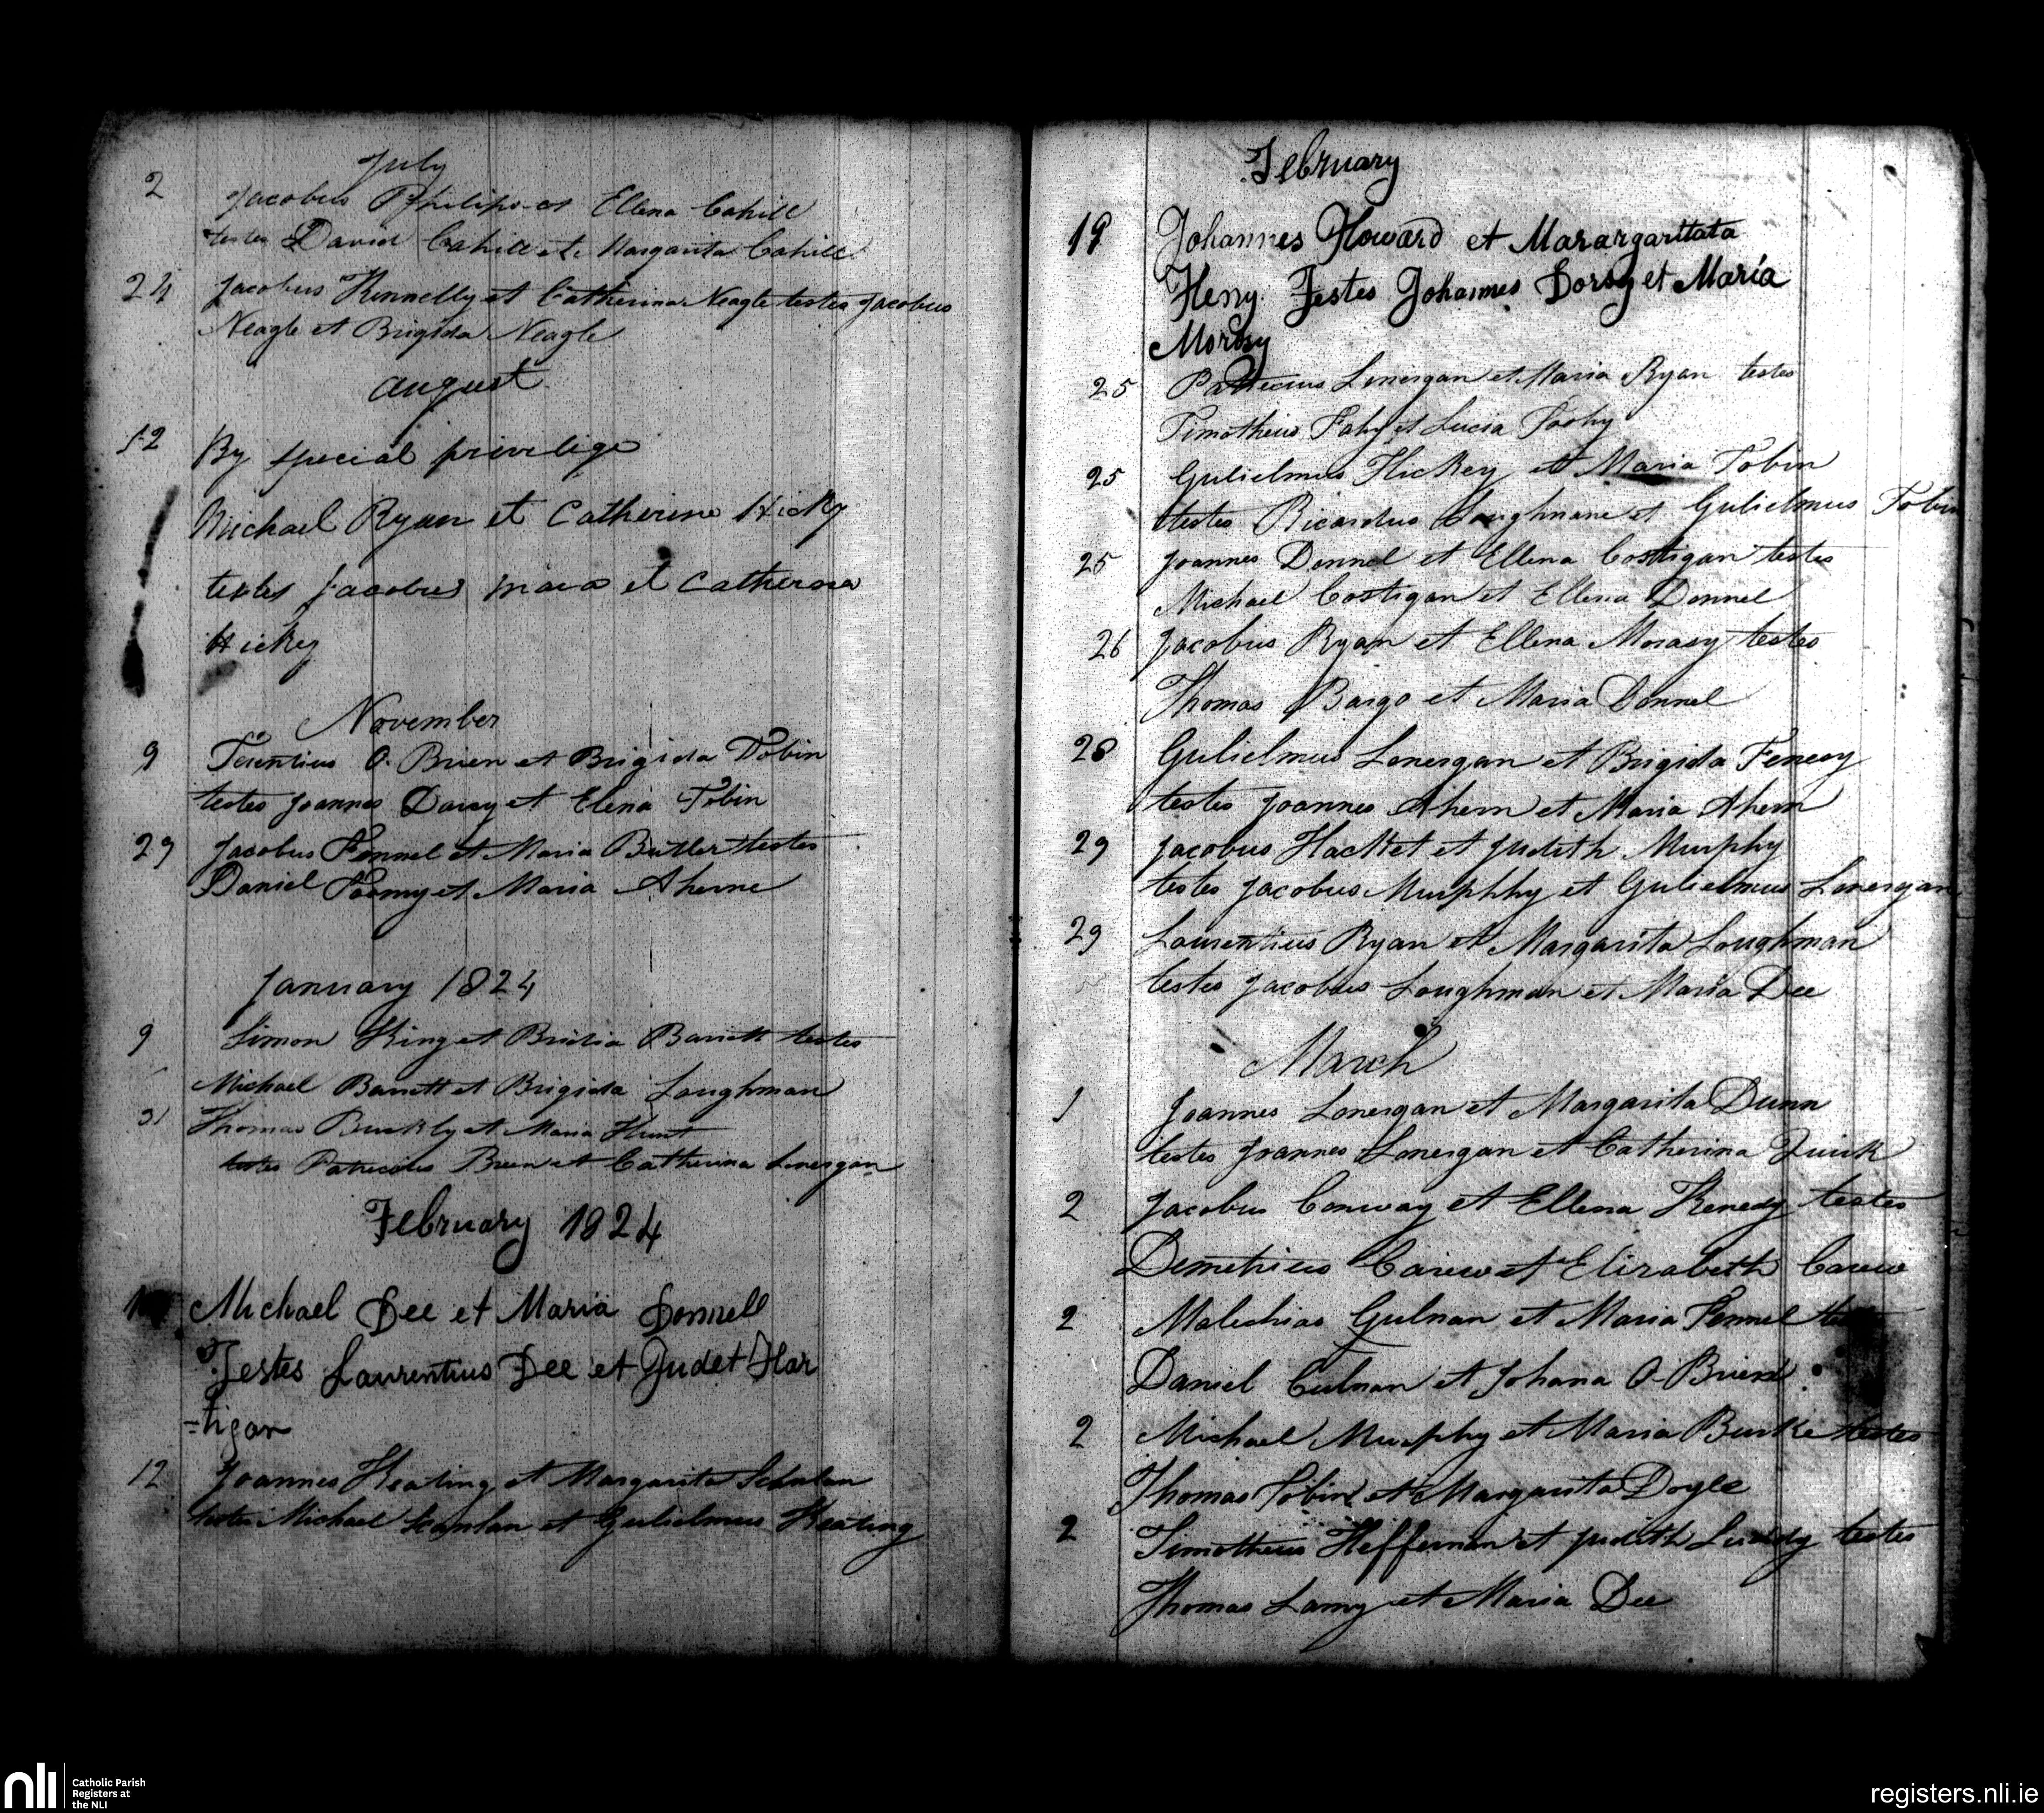 July
2 Jacobus Philips et Ellena Cahill
testes David Cahill et Margarita Cahill
24 Jacobus Kennelly et Catherina Neagle testes Jacobus
Neagle et Brigida Neagle
August
12 By special privelige
Michael Ryan et Catherine Hicky
testes Jacobus et Catherina
Hickey
November
9 Terentius O Brien et Brigida Tobin
testes Joannes Darcy et Elena Tobin
29 Jacobus Fennel et Maria Butler testes
Daniel et Maria Aherne
January 1824
9 Simon King et Barrett testes
Michael Barrett et Brigida Loughman
31 Thomas Buckly et Maria Hunt
testes Patricius Breen et Catherina Lonergan
February 1824
Michael Dee et Maria Donnell
Testes Laurentius Dee et Judet Har
=tigan
12 Joannes Keating et Margarita Scanlan
testes Michael Scanlan et Gulielmus Keating
February
19 Johannes Howard et Marargaritata
Heny Testes Johannes Dorsy et Maria
Morosy
25 Patricius Lonergan et Maria Ryan testes
Timotheus Fahy et Lucia
25 Gulielmus Hickey et Maria Tobin
testes Ricardus Loughnane et Gulielmus Tobin
25 Joannes Donnel et Ellena Costigan testes
Michael Costigan et Ellena Donnel
26 Jacobus Ryan et Ellena Morasy testes
Thomas Bargo et Maria Donnel
28 Gulielmus Lonergan et Brigida Fenesy
testes Joannes Ahern et Maria Ahern
29 Jacobus Hacket et Judith Murphy
testes Jacobus Murphhy et Gulielmus Lonergan
29 Laurentius Ryan et Margarita Loughman
testes Jacobus Loughman et Maria Dee
March
1 Joannes Lonergan et Margarita Dunn
testes Joannes Lonergan et Catherina Quirk
2 Jacobus Conway et Ellena Kenedy testes
Demetrius Carew et Elizabeth Carew
2 Malachias Gulnan et Maria Fennel
Daniel Culnan et Johana O Brien
2 Michael Murphy et Maria Burke testes
Thomas Tobin et Margarita Doyle
2 Timotheus Heffernan et Judith Luddy testes
Thomas Lamy et Maria Dee
nli Catholic Parish
Registers at
the NLI
registers.nli.ie